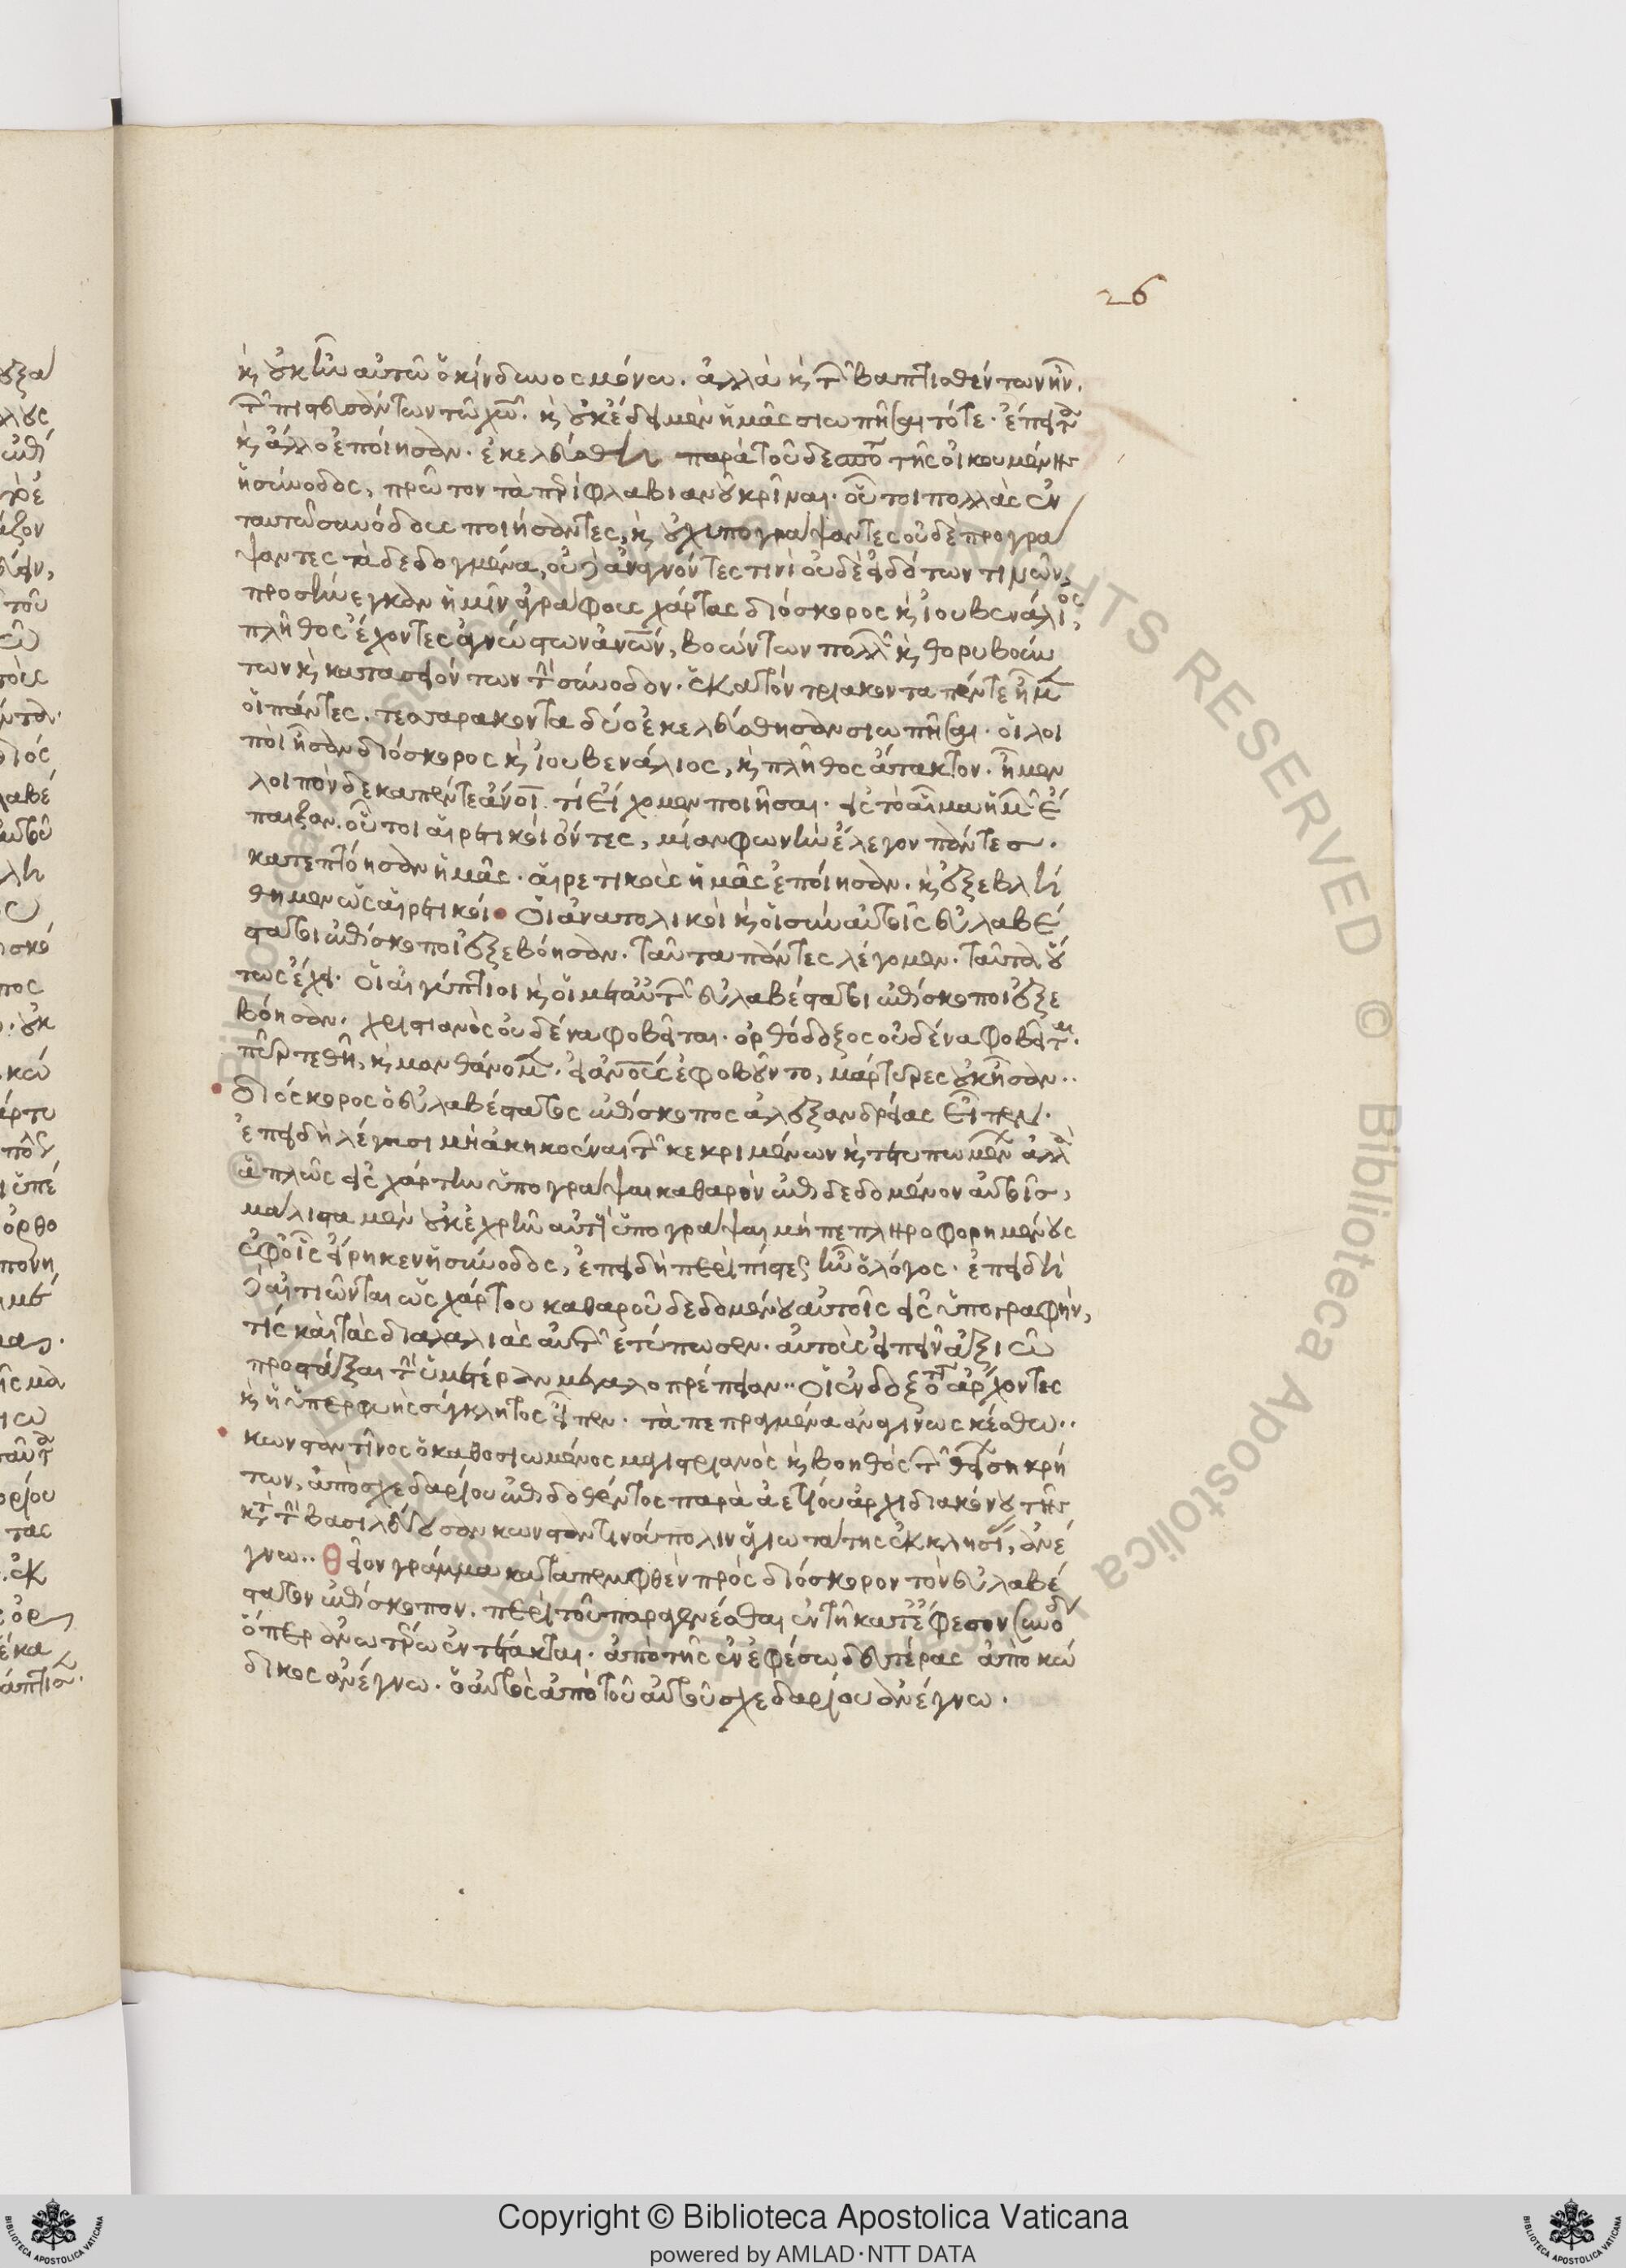 26
κ οὐκ ἦν αὐτῶ ὁ κίνδυνος μόνω. ἀλλὰ κ τ βαπτισθέντων
τ πιστευσάντων τῶ χῶ. κ οὐκ ἔδει μὲν ἡμᾶς σιωπῆσαι τότε.
κ ἄλλο ἐποίησαν. ἐκελεύσθη παρὰ τοῦ δεσπο τῆς οἰκουμένης
ἡ σύνοδος, πρῶτον τὰ περὶ φλαβιανοῦ κρῖναι. οὗτοι πολλὰς ἐν
ταυτῶ συνόδους ποιήσαντες, κ οὐχ ὑπογράψαντες οὐδὲ προγρά
ψαντες τὰ δεδογμένα, οὐδὲ ἀναγνόντες τινὶ οὐδὲ εἰδότων τινῶν,
προσήνεγκαν ἡμῖν ἀγράφους χάρτας διόσκορος κ ἰουβενάλιος,
πλῆθος ἔχοντες ἀγνώστων ἀνων, βοώντων πολλ κ θορυβούν
των κ καταστόντων τ σύνοδον. ἑκατὸν τριακονταπέντε ἦμ
οἱ πάντες. τεσσαρακονταδύο ἐκελεύσθησαν σιωπῆσαι. οἱ λοι
ποὶ ἦσαν διόσκορος κ ἰουβενάλιος, κ πλῆθος ἄτακτον. ἦμεν
λοιπὸν δεκαπέντε ἄνοι. τί εἴχομεν ποιῆσαι. εἰς τὸ αἷμα ἡμ ἔ
παιξαν. οὗτοι αἱρετικοὶ ὄντες, μίαν φωνὴν ἔλεγον πάντες.
κατεπτόησαν ἡμᾶς. αἱρετικοὺς ἡμᾶς ἐποίησαν. κ ἐξεβλή
θημεν ὡς αἱρετικοί. Οἱ ἀνατολικοὶ κ οἱ σὺν αὐτοῖς εὐλαβέ
στατοι ἐπίσκοποι ἐξεβόησαν. ταῦτα πάντες λέγομεν. ταῦτα οὕ
τως ἔχει. Οἱ αἰγύπτιοι κ οἱ μετ αὐτ εὐλαβέστατοι ἐπίσκοποι ἐξε
βόησαν. χριστιανὸς οὐδένα φοβεῖται. ὀρθόδοξος οὐδένα φοβεῖται.
πῦρ τεθῆ, κ μανθάνομ. εἰ ἀνους ἐφοβοῦντο, μάρτυρες οὐκ ἦσαν..
Διόσκορος ὁ εὐλαβέστατος ἐπίσκοπος ἀλεξανδρείας εἶπεν.
ἐπειδὴ λέγουσι μὴ ἀκηκοέναι τ κεκριμένων κ τετυπωμέν ἀλλ
ἁπλῶς εἰς χάρτην ὑπογράψαι καθαρὸν ἐπιδεδομένον αὐτοῖς,
μάλιστα μὲν οὐκ ἐχρῆν αὐτοὺς ὑπογράψαι μὴ πεπληροφορημένους
ἐφ οἷς εἴρηκεν ἡ σύνοδος, ἐπειδὴ περὶ πίστεως ἦν ὁ λόγος. ἐπειδὴ
δὲ αἰτιῶνται ὡς χάρτου καθαροῦ δεδομένου αὐτοῖς εἰς ὑπογραφήν,
τίς καὶ τὰς διαλαλιὰς αὐτ ἐτύπωσεν. αὐτοὺς εἰπεῖν ἀξιῶ
προστάξαι τ ὑμετέραν μεγαλοπρέπειαν.. Οἱ ἐνδοξ ἄρχοντες
κ ἡ ὑπερφυὴς σύγκλητος εἶπεν. τὰ πεπραγμένα ἀναγινωσκέσθω..
κωνσταντῖνος ὁ καθοσιωμένος μαγιστριανὸς κ βοηθὸς τ θεί σηκρή
των, ἀπὸ σχεδαρίου ἐπιδοθέντος παρὰ ἀετίου ἀρχιδιακόνου τῆς
κτ τ βασιλεύουσαν κωνσταντινούπολιν ἁγιωτάτης ἐκκλησί, ἀνέ
γνω.. Θεῖον γράμμα καταπεμφθὲν πρὸς διόσκορον τὸν εὐλαβέ
στατον ἐπίσκοπον. περὶ τοῦ παραγενέσθαι ἐν τῆ κατ ἔφεσον συνόδ
ὅπερ ἀνωτέρω ἐντέτακται. ἀπὸ τῆς ἐν ἐφέσω δευτέρας ἀπὸ κώ
δικος ἀνέγνω. ὁ αὐτὸς ἀπὸ τοῦ αὐτοῦ σχεδαρίου ἀνέγνω.
© Biblioteca Apostolica Vaticana ALL RIGHTS RESERVED © Biblioteca Apostolica Vaticana
Copyright © Biblioteca Apostolica Vaticana
powered by AMLAD·NTT DATA